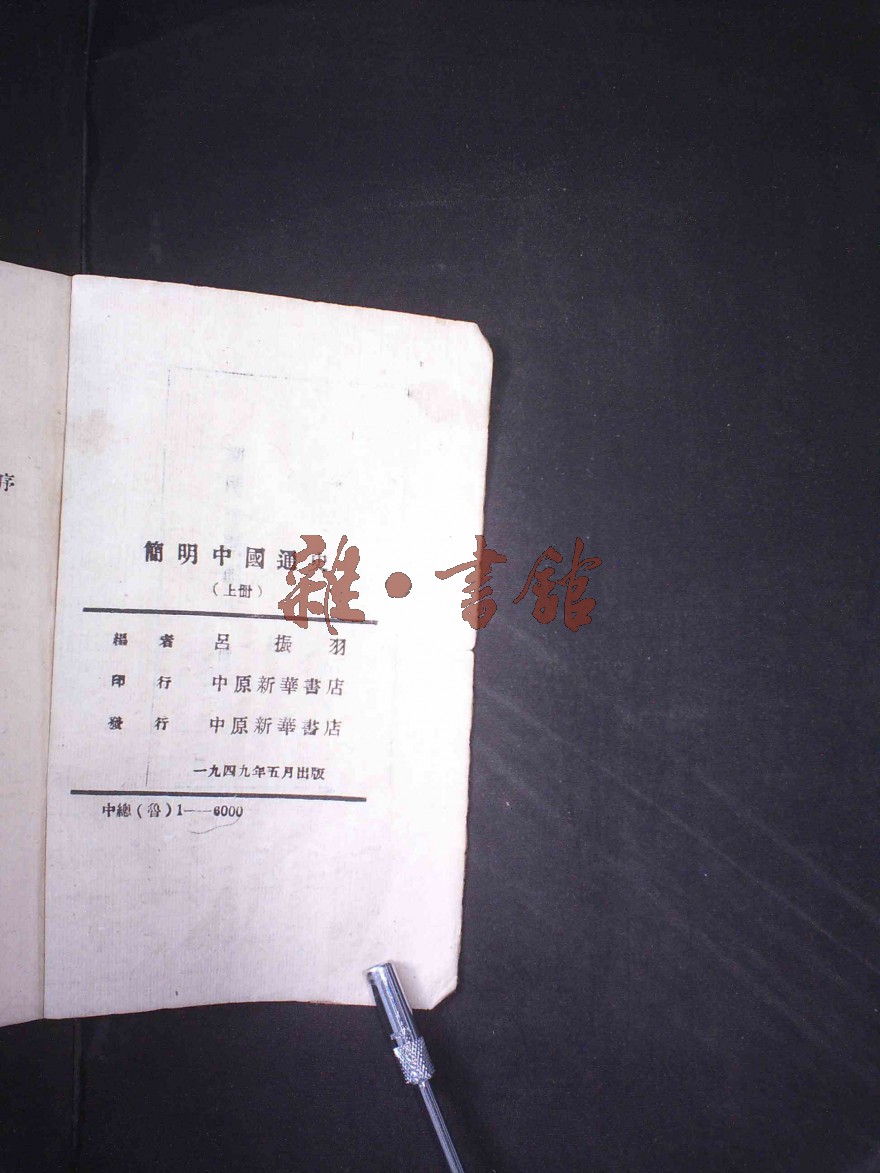 序
簡明中國通史
（上册）
編者 呂振羽
印行 中原新華書店
發行 中原新華書店
一九四九年五月出版
中總（魯）1——6000
雜·書館